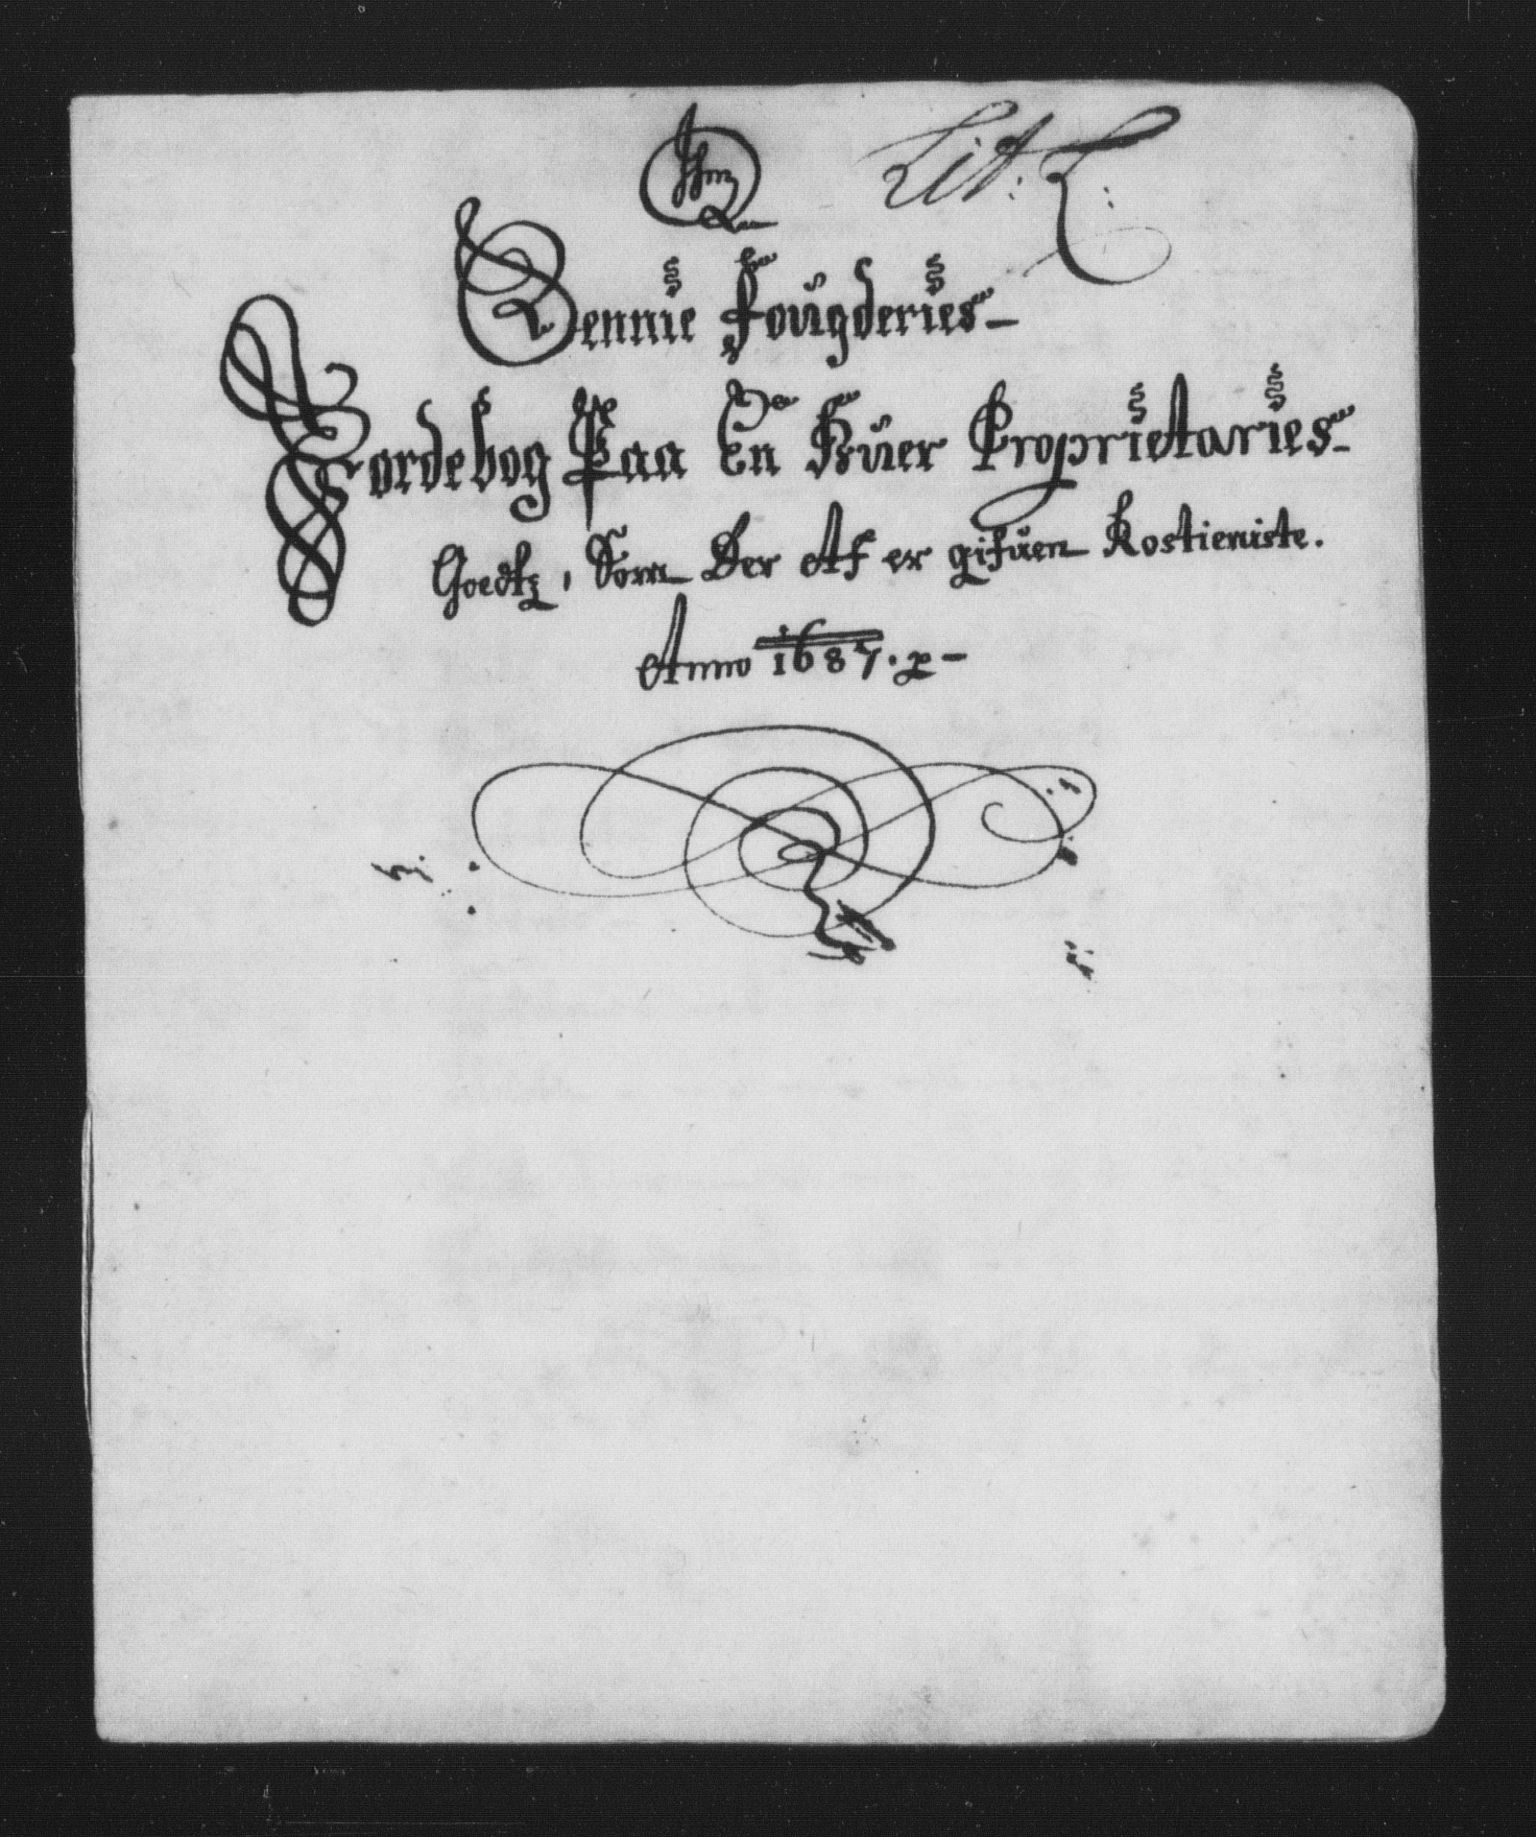 Lit: L:
Sennie Fougderies
Jordebog Paa En Huer Proprietaries
Goedtz, Som Der Af er gifuen Rostieniste.
Anno 1687.